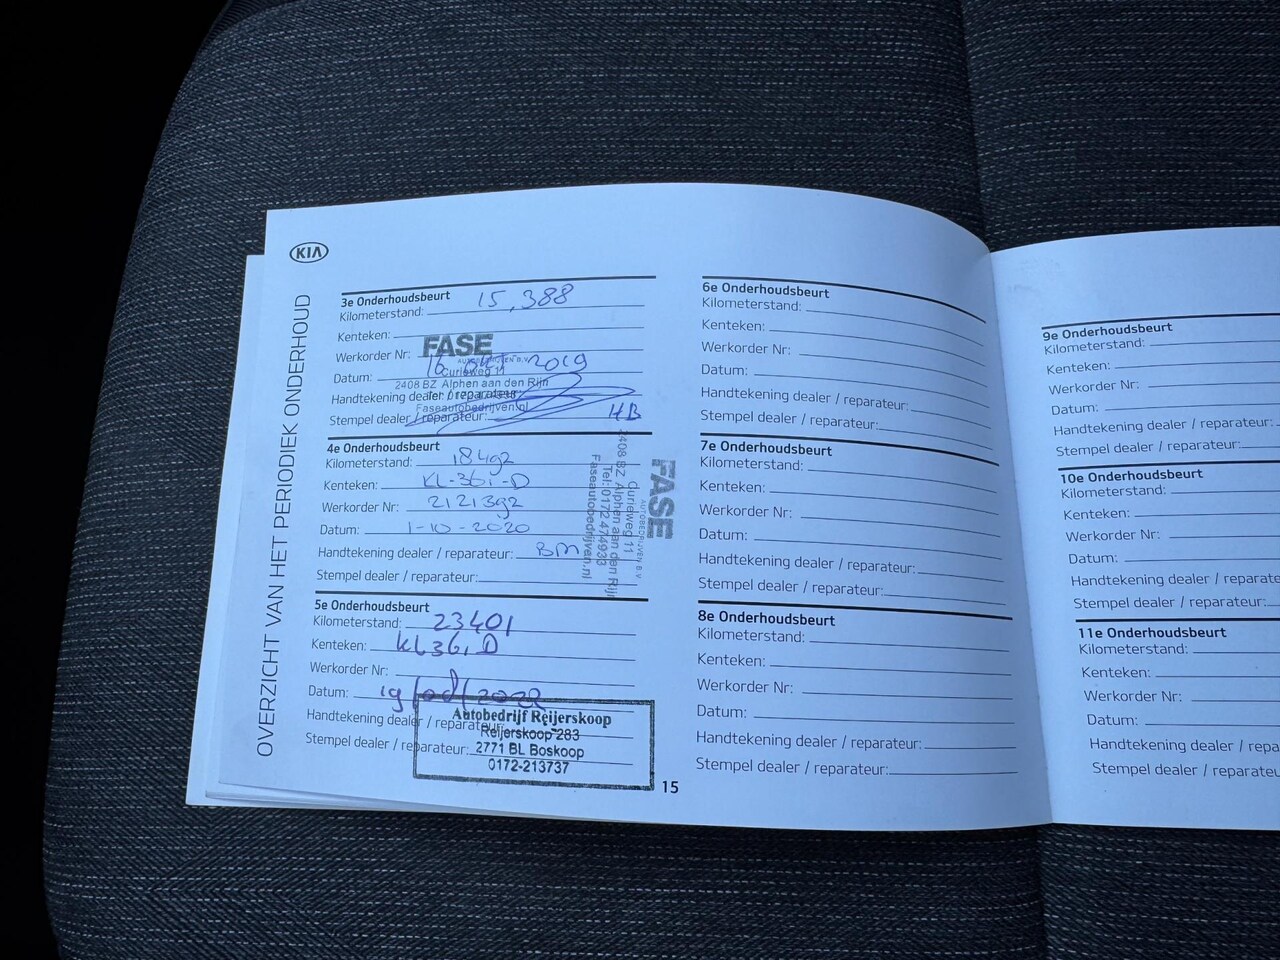 KIA
OVERZICHT VAN HET PERIODIEK ONDERHOUD
3e Onderhoudsbeurt
Kilometerstand: 15,388
Kenteken:
Werkorder Nr:
Datum: 16 2019
Handtekening dealer / reparateur:
Stempel dealer / reparateur: HB
FASE
AUTOBEDRIJVEN B.V.
Curieweg 11
2408 BZ Alphen aan den Rijn
Tel: 0172-474933
Faseautobedrijven.nl
4e Onderhoudsbeurt
Kilometerstand: 18492
Kenteken: KL-361-D
Werkorder Nr: 2121392
Datum: 1-10-2020
Handtekening dealer / reparateur: BM
Stempel dealer / reparateur:
FASE
AUTOBEDRIJVEN B.V.
Curieweg 11
2408 BZ Alphen aan den Rijn
Tel: 0172-474933
Faseautobedrijven.nl
5e Onderhoudsbeurt
Kilometerstand: 23401
Kenteken: KL361D
Werkorder Nr:
Datum: 2022
Handtekening dealer / reparateur:
Stempel dealer / reparateur:
Autobedrijf Reijerskoop
Reijerskoop 283
2771 BL Boskoop
0172-213737
15
6e Onderhoudsbeurt
Kilometerstand:
Kenteken:
Werkorder Nr:
Datum:
Handtekening dealer / reparateur:
Stempel dealer / reparateur:
7e Onderhoudsbeurt
Kilometerstand:
Kenteken:
Werkorder Nr:
Datum:
Handtekening dealer / reparateur:
Stempel dealer / reparateur:
8e Onderhoudsbeurt
Kilometerstand:
Kenteken:
Werkorder Nr:
Datum:
Handtekening dealer / reparateur:
Stempel dealer / reparateur:
9e Onderhoudsbeurt
Kilometerstand:
Kenteken:
Werkorder Nr:
Datum:
Handtekening dealer / reparateur:
Stempel dealer / reparateur:
10e Onderhoudsbeurt
Kilometerstand:
Kenteken:
Werkorder Nr:
Datum:
Handtekening dealer / reparate
Stempel dealer / reparateur:
11e Onderhoudsbeurt
Kilometerstand:
Kenteken:
Werkorder Nr:
Datum:
Handtekening dealer / repa
Stempel dealer / reparateu